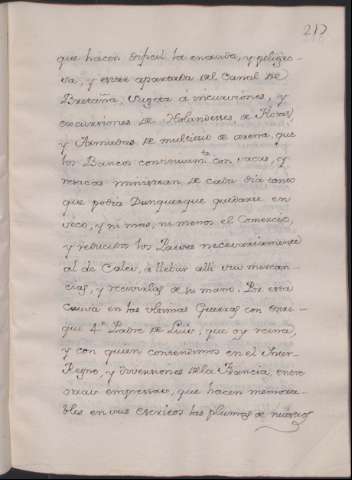 217
que hacen dificil la entrada, y peligro-
sa, y estar apartada del Canal de
Bretaña, sugeta á incursiones, y
excursiones de Holandeses, de Flotas,
y Armadas de multitud de arena, que
los Bancos continuam.te con vacas, y
resacas ministran de cada dia tanto
que podia Dunquerque quedarse en
seco, y ni mas, ni menos el Comercio,
y reducidos los Paises necesariamente
al de Calès, á llebar alli sus mercan-
cias, y recivirlas de su mano. Por esta
causa en las ultimas Guerras con Enri-
que 4.º Padre de Luis, que oy reina,
y con quien contendimos en el Inter-
Reyno, y divisiones de la Francia, entre
otras empresas, que hacen memora-
bles en sus escritos las plumas de nuestros